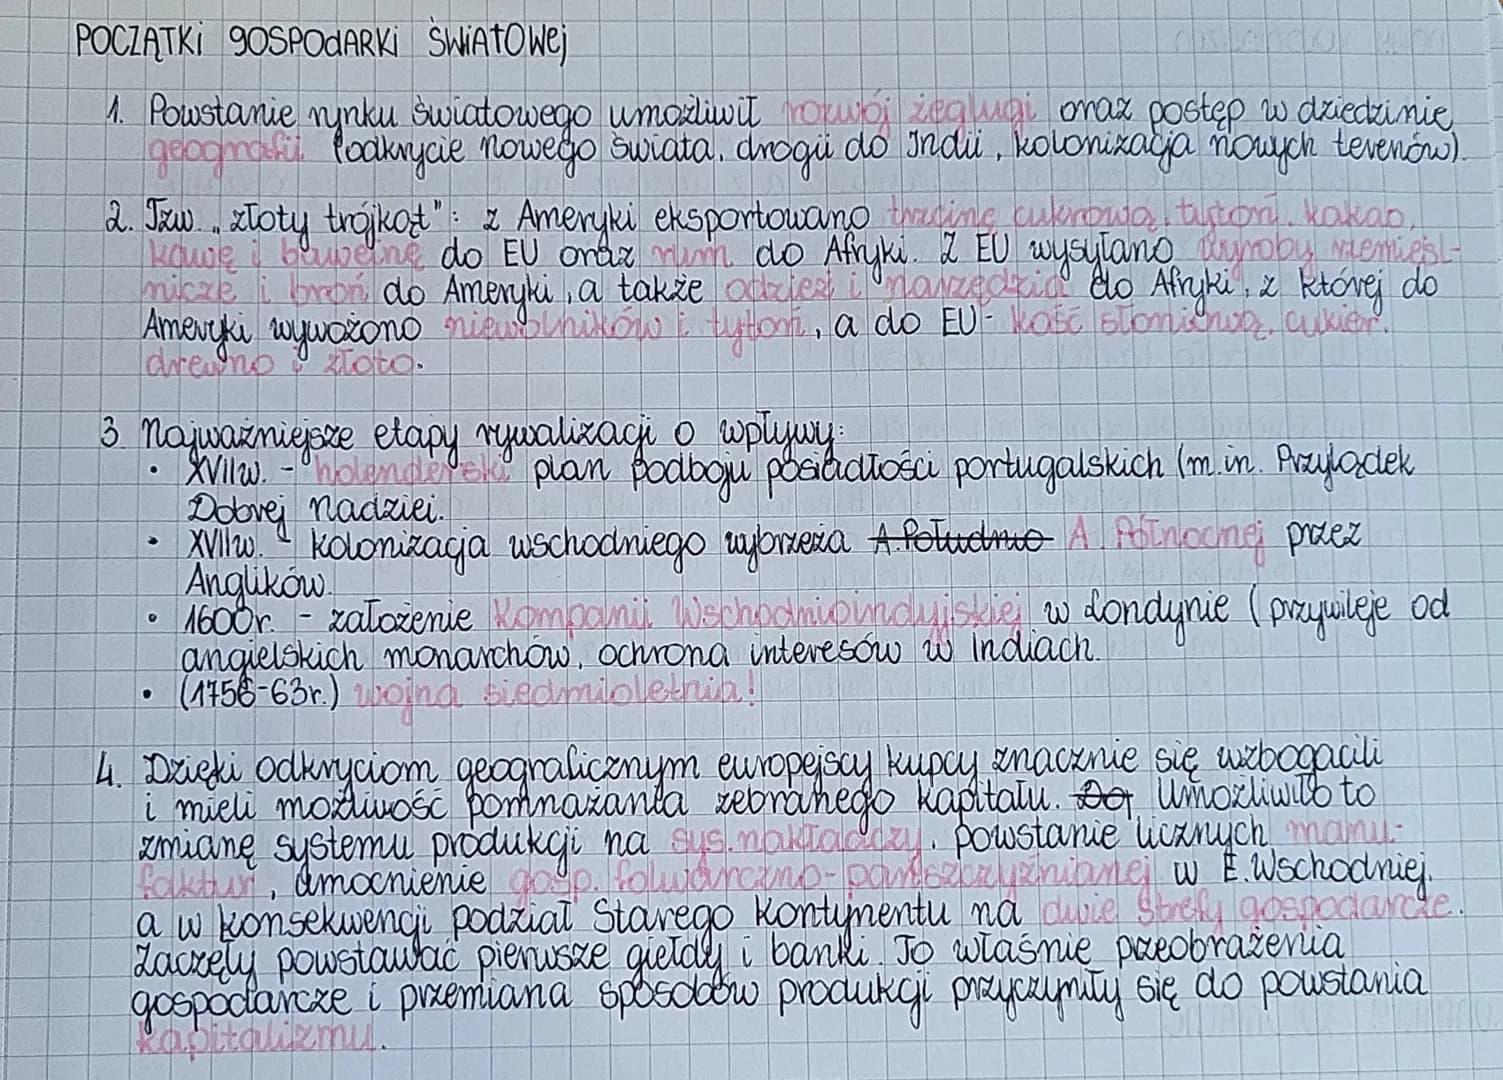 POCZĄTKi gOSPOdARKi ŚWiAtOWej
1. Powstanie rynku światowego umożliwił rozwój żeglugi oraz postęp w dziedzinie
geografii (odkrycie nowego świata, drogii do Indii, kolonizacja nowych terenów).
2. Tzw. „złoty trójkąt": z Ameryki eksportowano trzcinę cukrową, tytoń, kakao,
kawę i bawełnę do EU oraz rum do Afryki. Z EU wysyłano wyroby rzemieśl-
nicze i broń do Ameryki, a także odzież i narzędzia do Afryki, z której do
Ameryki wywożono niewolników i tytoń, a do EU- kość słoniową, cukier,
drewno i złoto.
3 Najważniejsze etapy rywalizacji o wpływy:
• XVIIw. - holenderski plan podboju posiadłości portugalskich (m.in. Przylądek
Dobrej Nadziei.
• XVIIw. - kolonizacja wschodniego wybrzeża A.Południo A. Północnej przez
Anglików.
• 1600r. - założenie Kompanii Wschodnioindyjskiej w Londynie (przywileje od
angielskich monarchów, ochrona interesów w Indiach.
• (1756-63r.) wojna siedmioletnia!
4. Dzięki odkryciom geograficznym europejscy kupcy znacznie się wzbogacili
i mieli możliwość pomnażania zebranego kapitału. Umożliwiło to
zmianę systemu produkcji na sys.nakładczy, powstanie licznych manu-
faktur, umocnienie gosp. folwarczno-pańszczyźnianej w E.Wschodniej,
a w konsekwencji podział Starego Kontynentu na dwie strefy gospodarcze.
Zaczęły powstawać pierwsze giełdy i banki. To właśnie przeobrażenia
gospodarcze i przemiana sposobów produkcji przyczyniły się do powstania
kapitalizmu.